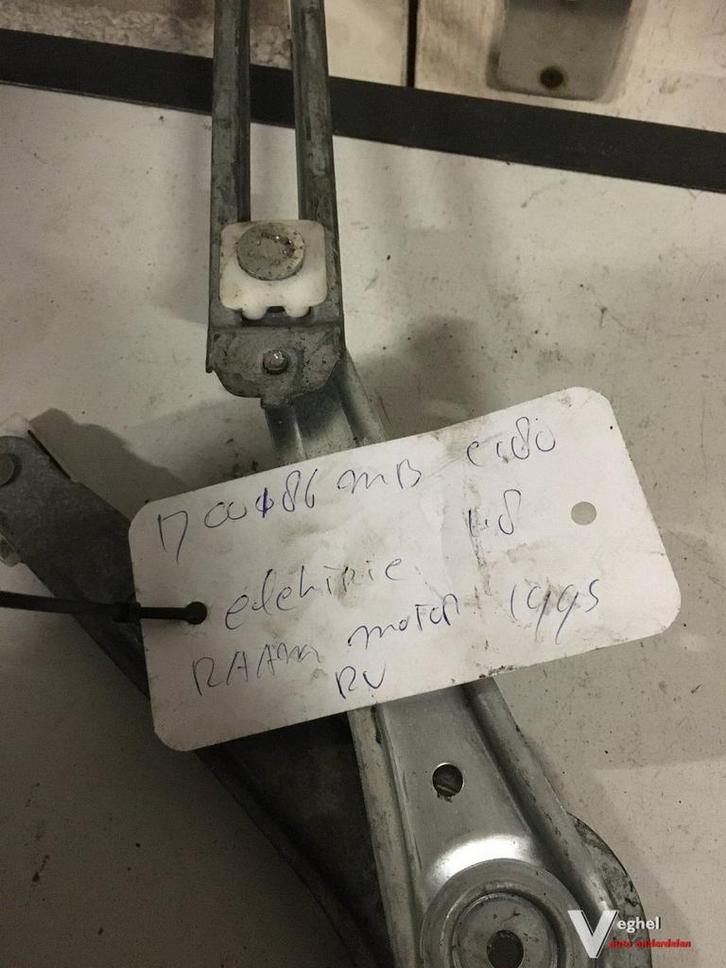 1700186 MB C180
1.8
elektrise
RAAM motor 1995
RV
Veghel
auto onderdelen